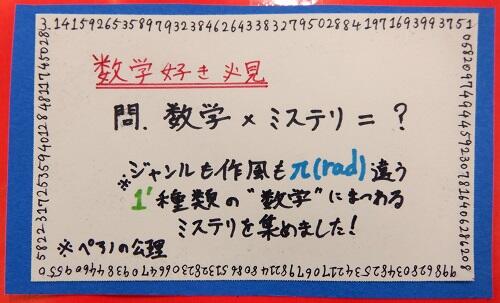 3.1415926535897932384626433832795028841971693993751
05820974944592307816406286208
数学好き必見
問. 数学 × ミステリ = ?
※ジャンルも作風もπ(rad)違う
1'種類の"数学"にまつわる
ミステリを集めました!
※ペアノの公理